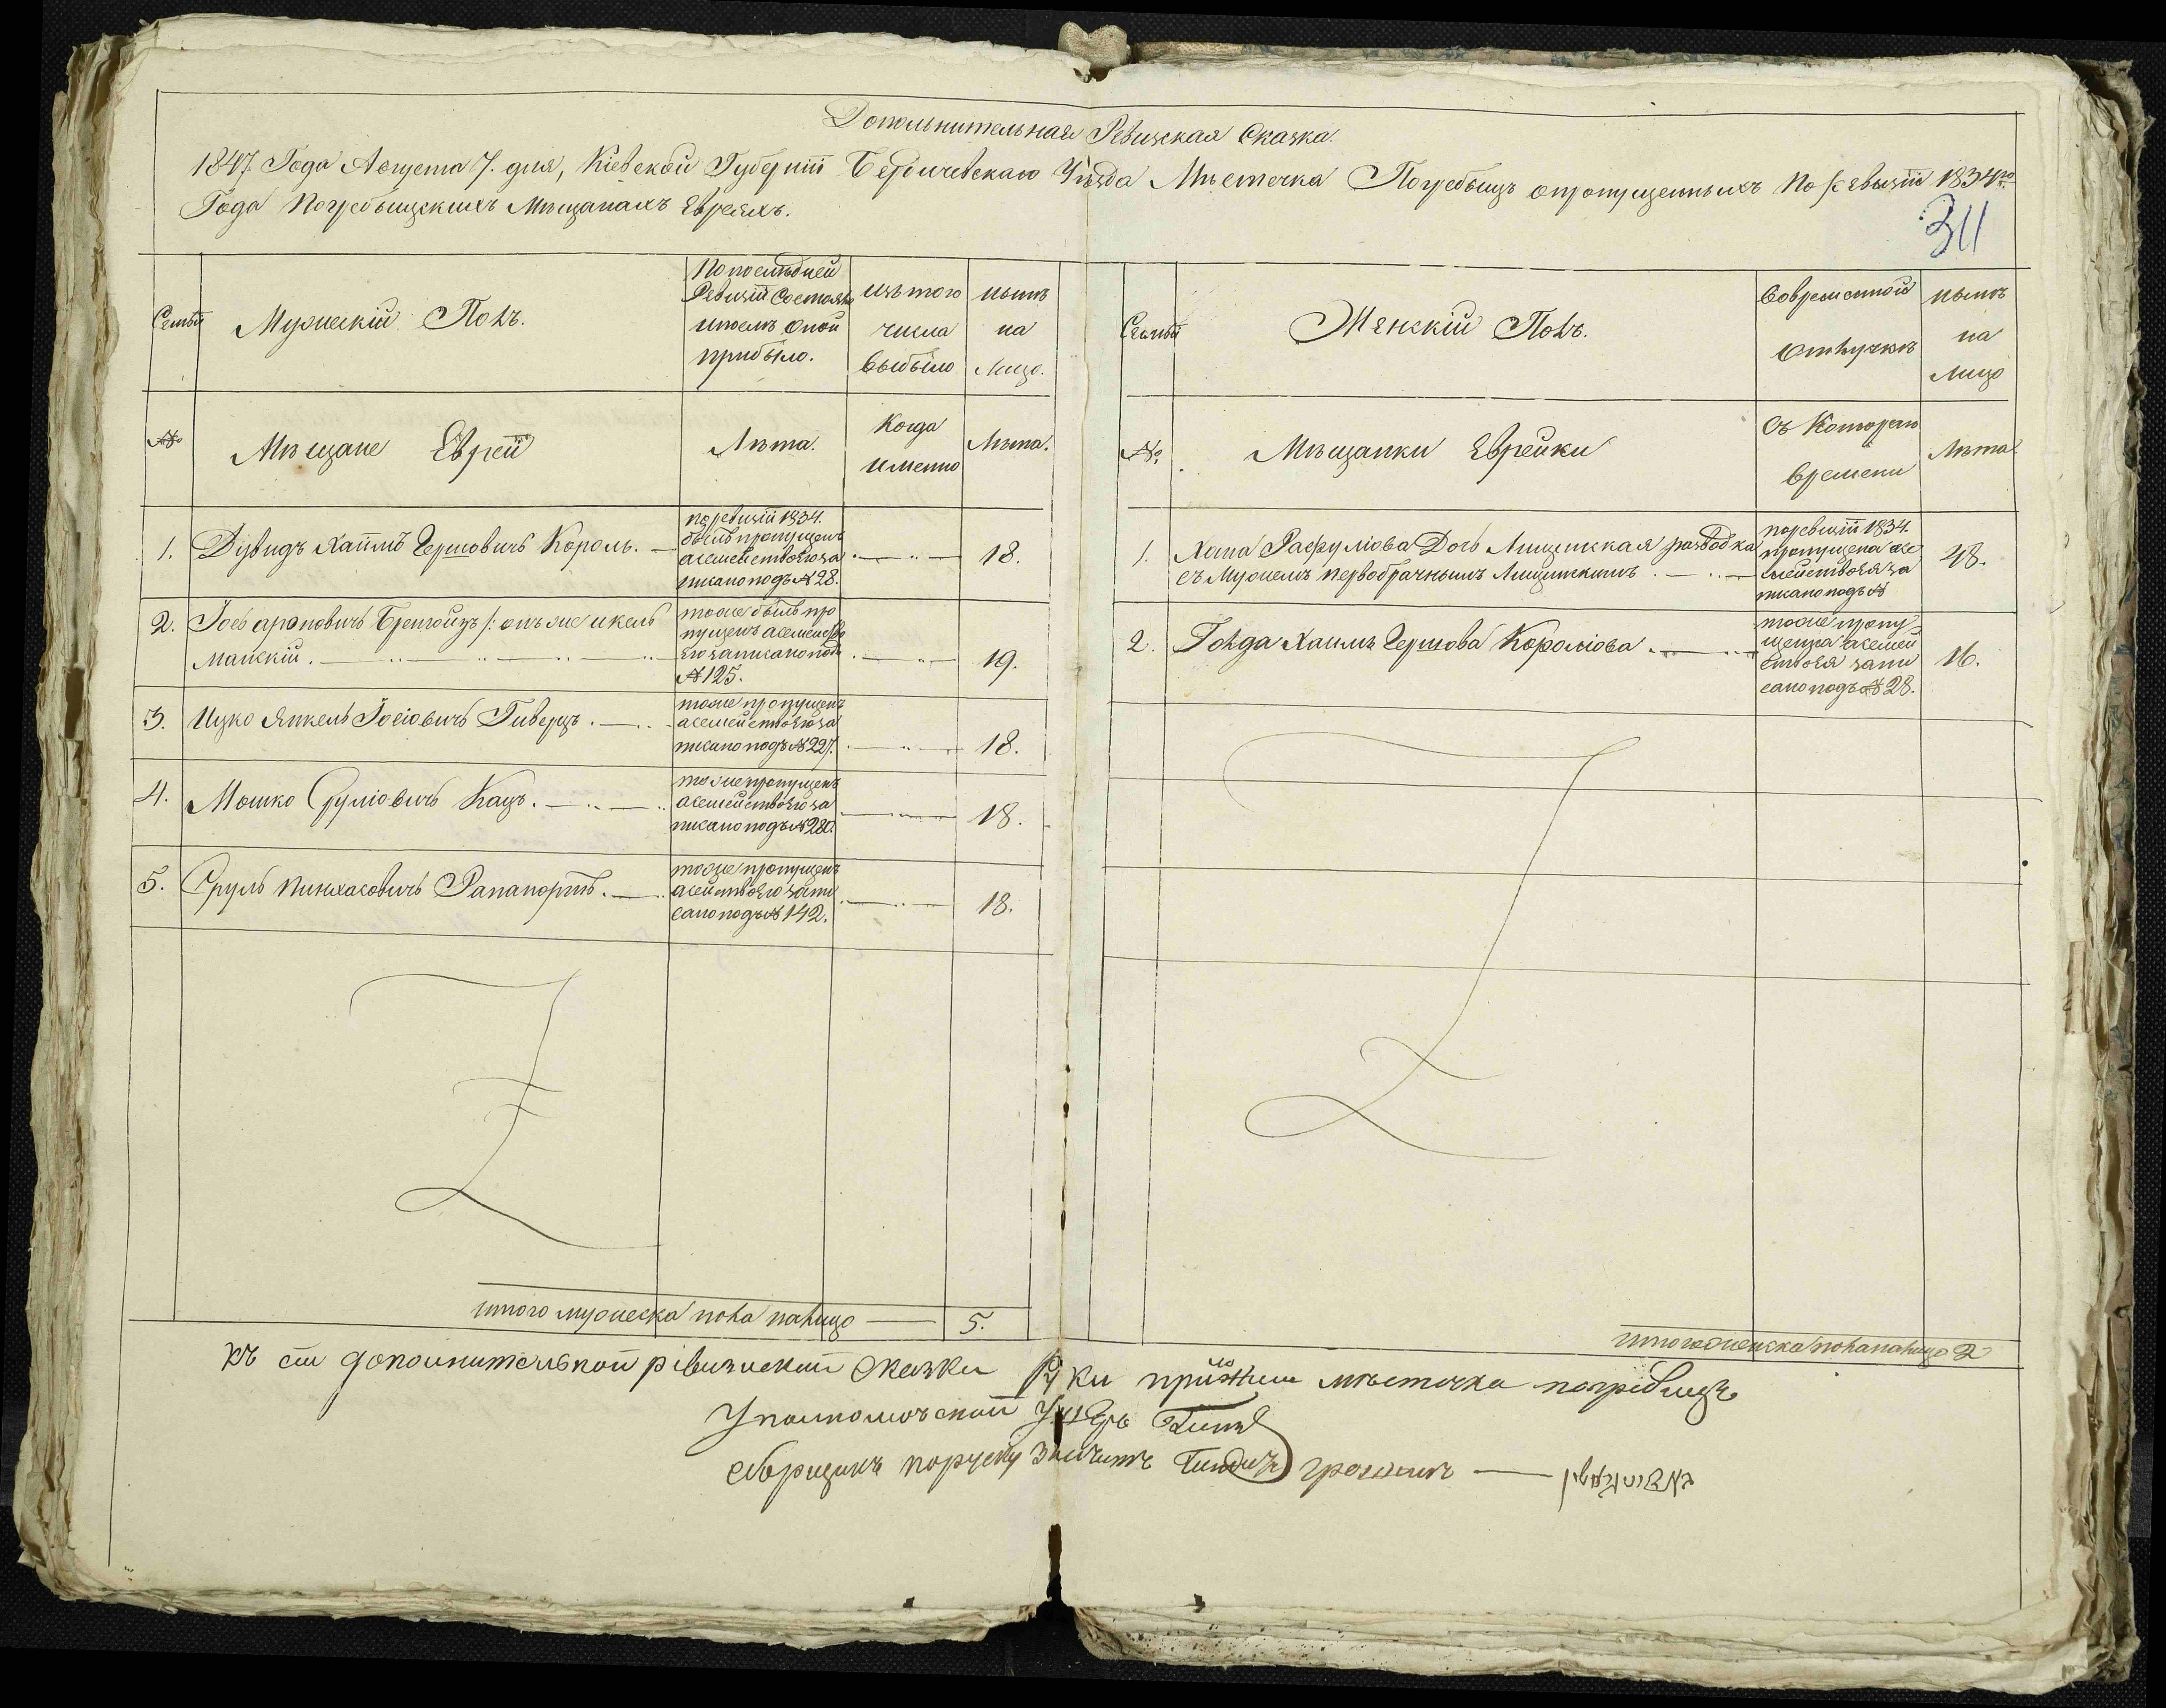 Дополнительная Ревизская Сказка.
1847. Года Августа 7. дня, Кіевской Губерніи Бердичевскаго Уѣзда Мѣстечка Погребыщъ опропущенныхъ По ревизіи 1834го
Года Погребыщскихъ Мѣщанахъ Евреяхъ.
311
Семьи
Мужескій Полъ.
Попослѣдней
Ревизіи Состояло
ипослѣ Оной
прибыло.
изъ того
числа
выбыло
нынѣ
на
Лицо.
№
Мѣщане Евреи
Лѣта.
Когда
именно
Лѣта.
1. Дувидъ Хаимъ Гершовичъ Король.
поревизіи 1834.
былъ пропущенъ
асемейство его за
писано подъ № 28.
18.
2. Іось
/: онъ же
манскій.
тоже былъ про
пущенъ асемейство
его записано подъ
№ 125.
19.
3. Ицко Янкель Іосіовичъ Гиверцъ.
тоже пропущенъ
асемейство его за
писано подъ № 227.
18.
4. Мошко Сруліовичъ Кацъ.
тоже пропущенъ
асемейство его за
писано подъ № 280.
18.
5. Сруль Пинхасовичъ Рапапортъ.
тоже пропущенъ
асемйство его запи
сано подъ № 142.
18.
итого мужеска пола налицо 5.
Семьи
Женскій Полъ.
Вовременной
Отлучкѣ
нынѣ
на
Лицо
№.
Мѣщанки Еврейки
Съ Котораго
Времени
Лѣта
1. Хана Дочь разводка
съ Мужемъ первобрачнымъ
поревизіи 1834.
пропущена асе
мейство ея за
писано подъ №
48.
2. Голда Хаимъ Гершова Короліова.
тоже пропу
щена асемей
ство ея запи
сано подъ № 28.
16.
итого женска пола налицо 2
Къ сей дополнительной ревизской сказки руки приложили мѣстечка погребищъ